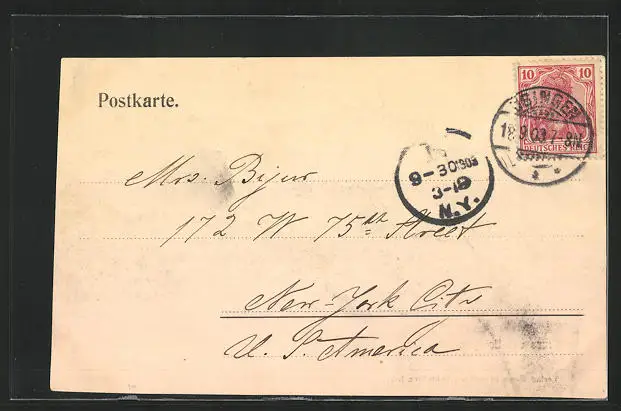 Postkarte.
10 10
DEUTSCHES REICH
18.9.03.7-8N.
9-30 1903
3-19
N.Y.
Mrs. Bijur
172 W 75th Street
New-York City
U. S. America